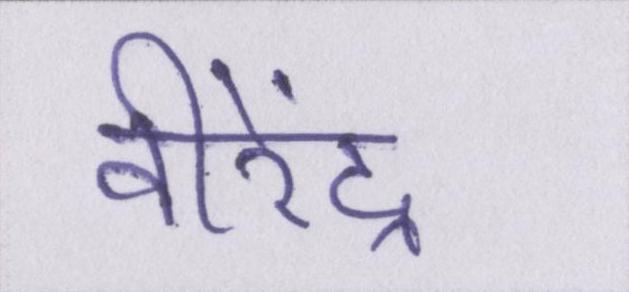 वीरेंद्र